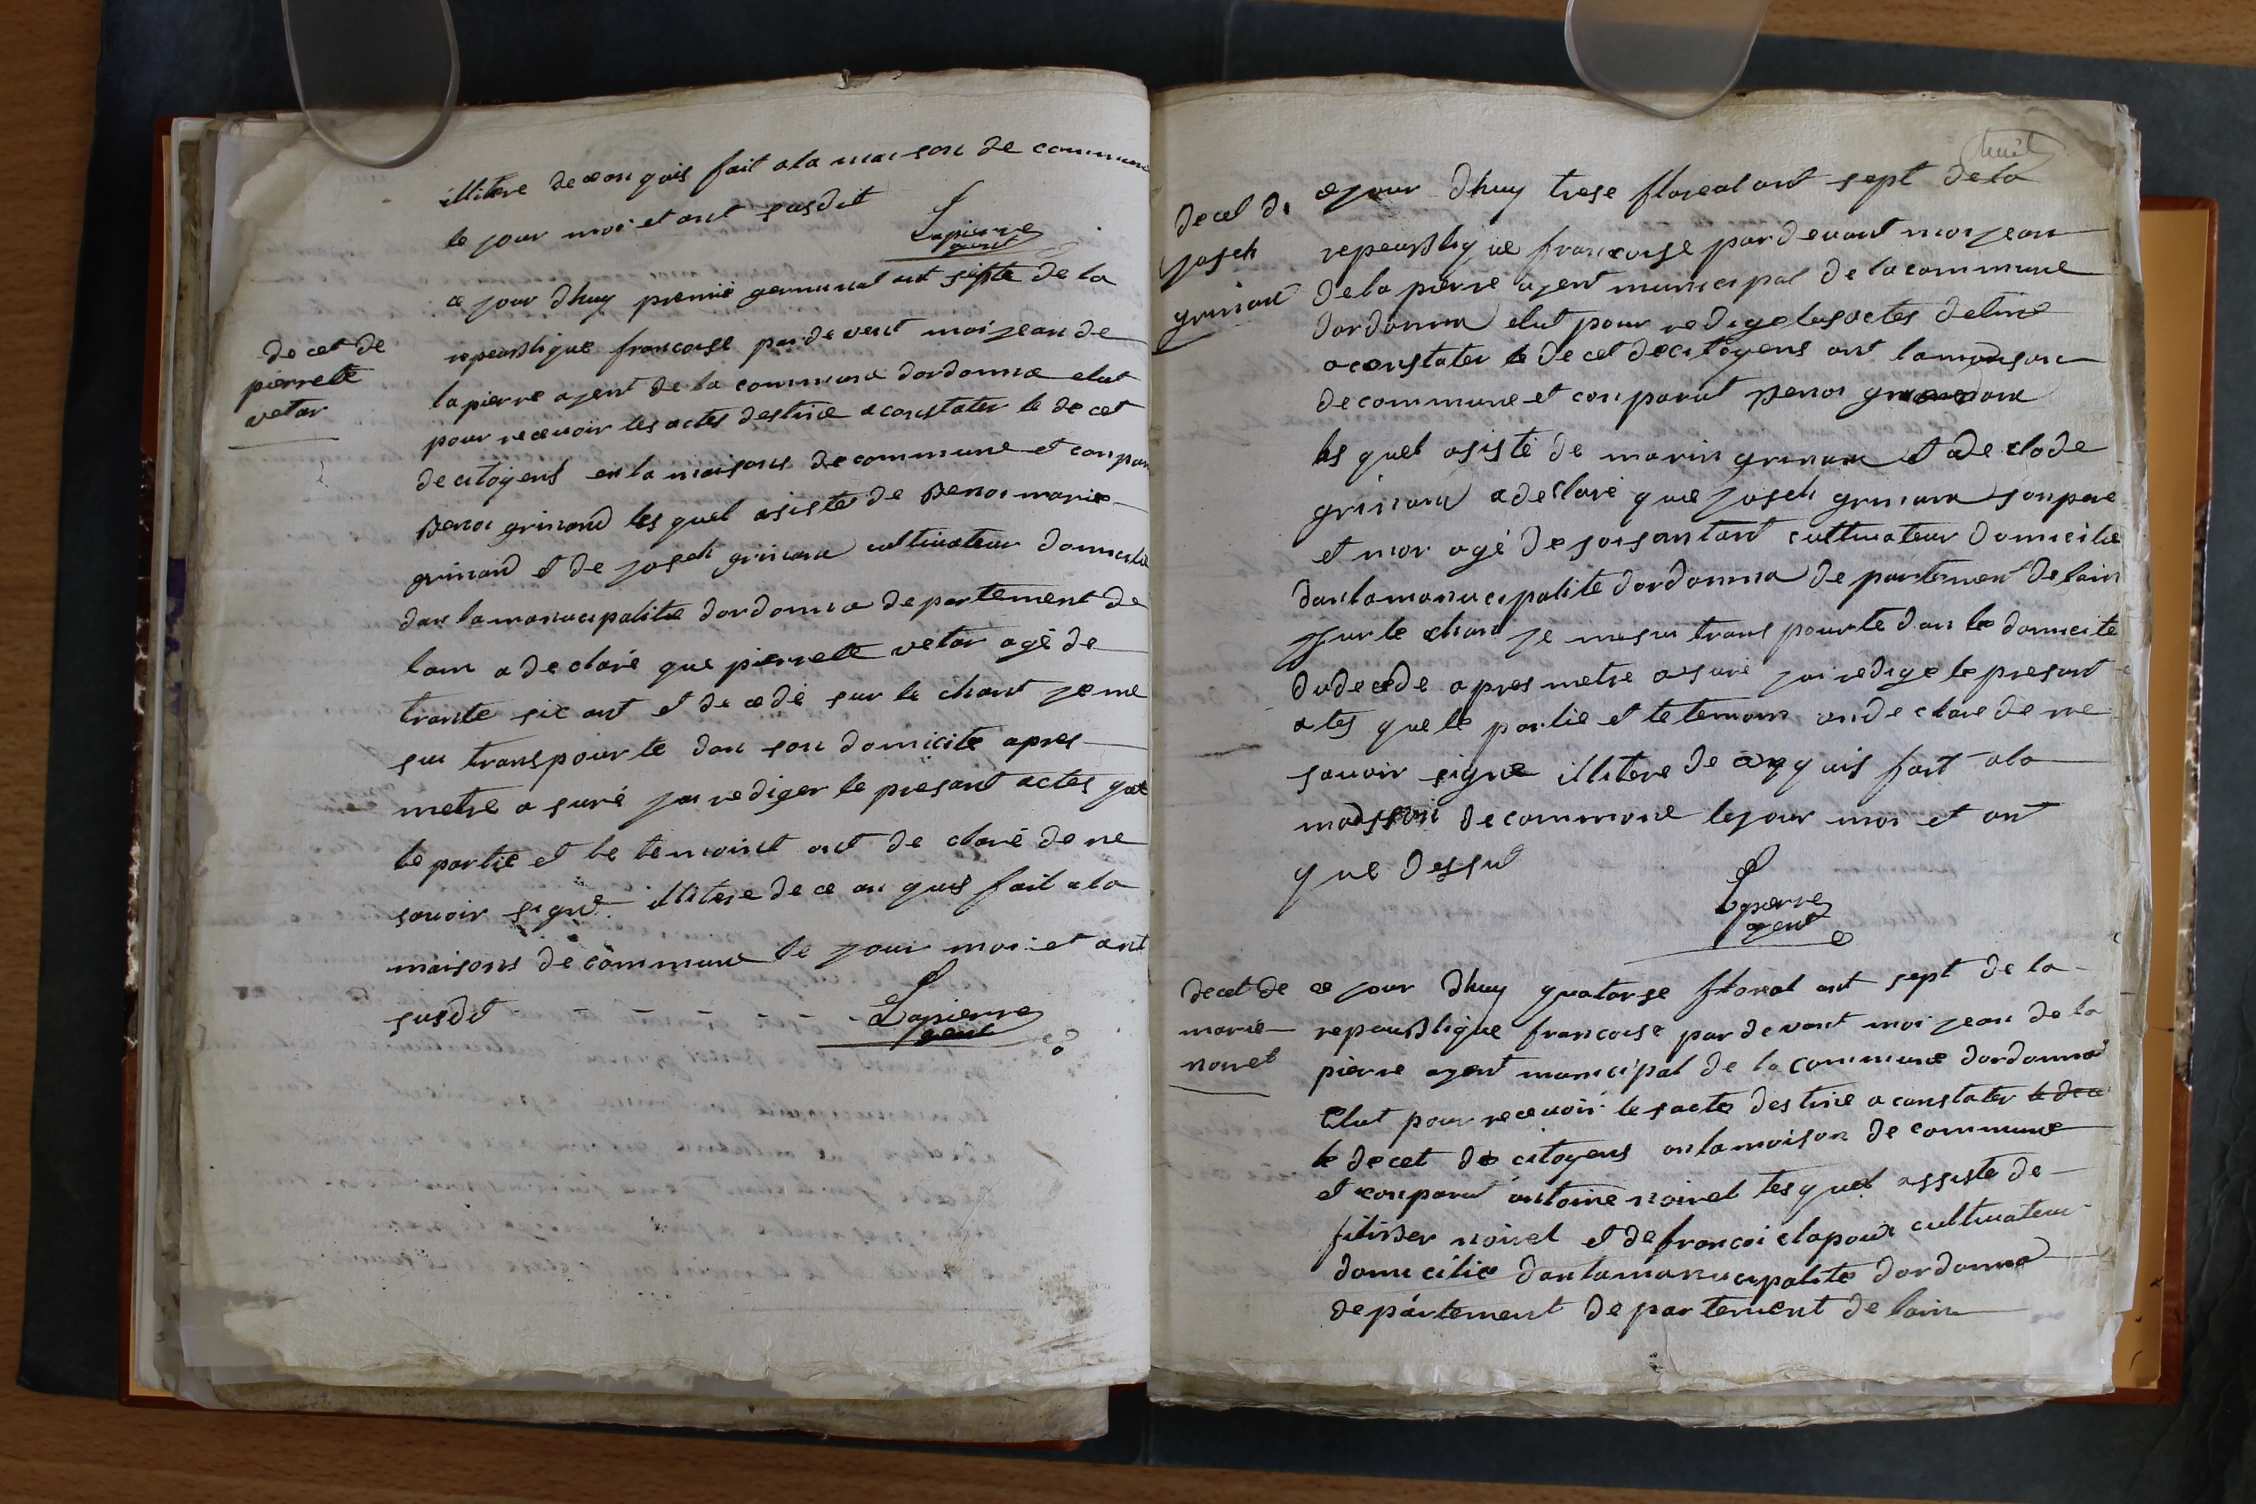 illitere de ceon quis fait a la mai son de commune
le jour moi et ant susdit
Lapierre
agent
ce jour dhuy premié germinal ant septe de la
repeublique francoise par de vent moi jean de
lapierre agent de la commune dordonna elut
pour recevoir les actes destine a constater le de cet
de citoyens en la maisons de commune et conpar
benoi grinand les quel asiste de benoi marie
grinand et de joseh grinand cultivateur domicilie
dan la manucipalitie dordonna departement de
lain a de claré que pierrete vetar agé de
trante sie ant et de cedé sur le chant je me
sui transpourte dan son domicite apres
metre a suré jai rediger le presant actes que
le partie et le temoint ont de claré de ne
savoir signé illitere de ce on quis fait a la
maisons de commune le jour moi et ant
susdit
Lapierre
agent
de cet de
pierrete
vetar
huit
decet de
joseh
grinand
ce jour dhuy trese floreal ant sept de la
repeublique francoise par devant moi jean
de la pierre agent municipal de la commune
dordonna elut pour redige les actes detiné
a constater le de cet de citoyens ant la maison
de commune et conparut benoi grinand
les quel asisté de marin grinand et de clode
grinand a declaré que joseh grinand son pere
et mor agé de soisantant cultivateur domicilié
dan la manucipalité dordonna de partement de lain
sur le chant je me sui trans pourte dan le domicite
du decede apres metre asuré jai redige le presant
a tes que le partie et le temoin on de clare de ne
savoir signé illitere de ce en quis fait a la
maisson de commune le jour moi et ant
que dessut
Lapierre
agent
decet de
marie
noiret
ce jour dhuy quatorse floreal ant sept de la
repeublique francoise par devant moi jean de la
pierre agent municipal de la commune dordonna
Elut pour recevoir les actes destiné a constater le dece
le decet de citoyens en la maison de commune
et conparut antoine noiret les quel assiste de
filiber noiret et de francoi clapour cultivateur
domicilie dan la manucipalite dordonna
departement de partement de lain